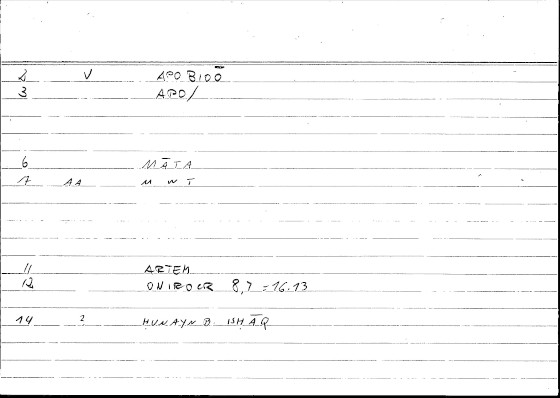 2 V APO BIOŌ
3 APO/
6 MĀTA
7 AA M W T
11 ARTEM
12 ONIROCR 8,7 = 16.13
14 2 ḤUNAYN B. ISḤĀQ